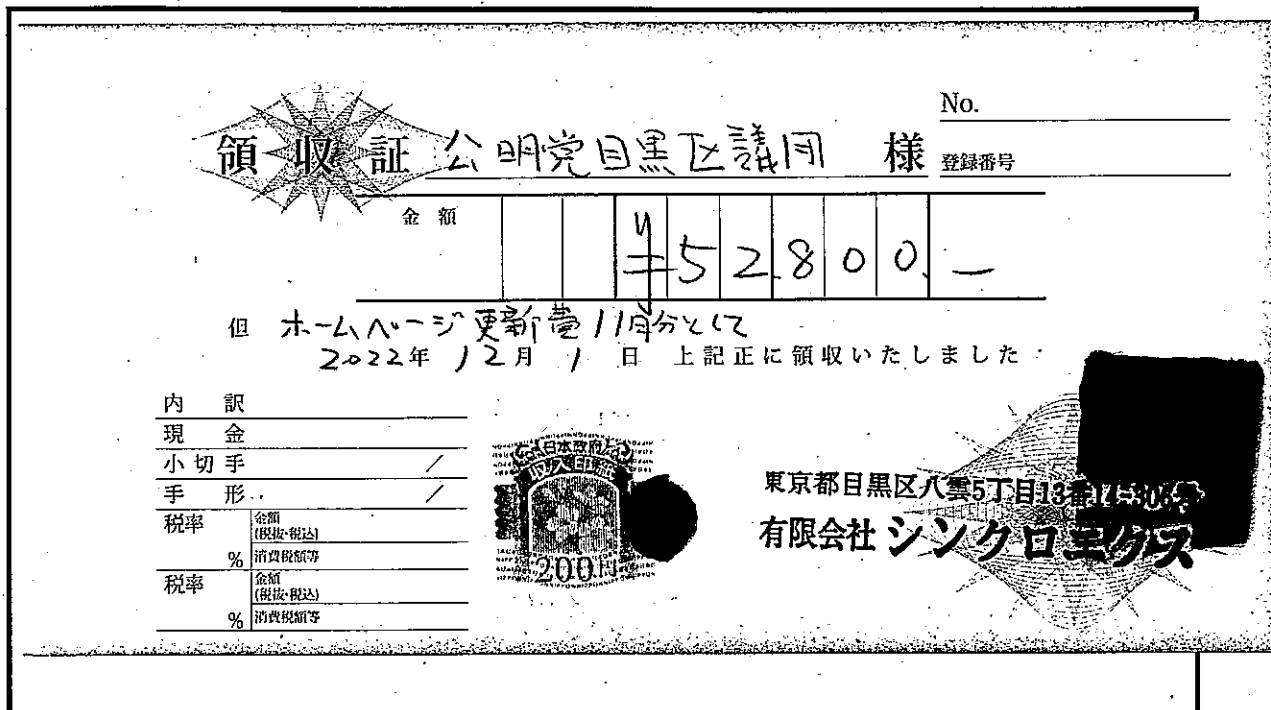 No.
領収証 公明党目黒区議団 様
登録番号
金額 ¥52,800.—
但 ホームページ更新費11月分として
2022年 12月 1日 上記正に領収いたしました
内訳
現金
小切手 /
手形 /
税率 % 金額(税抜・税込)
消費税額等
税率 % 金額(税抜・税込)
消費税額等
日本政府
収入印紙
200円
東京都目黒区八雲5丁目13番14-306号
有限会社 シンクロエクス